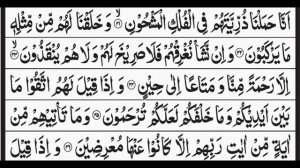 اَنَّا حَمَلْنَا ذُرِّيَّتَهُمْ فِي الْفُلْكِ الْمَشْحُوْنِ ۙ۴۱ وَ خَلَقْنَا لَهُمْ مِّنْ مِّثْلِهٖ
مَا يَرْكَبُوْنَ ۴۲ وَ اِنْ نَّشَاْ نُغْرِقْهُمْ فَلَا صَرِيْخَ لَهُمْ وَلَا هُمْ يُنْقَذُوْنَ ۙ۴۳
اِلَّا رَحْمَةً مِّنَّا وَ مَتَاعًا اِلٰى حِيْنٍ ۴۴ وَ اِذَا قِيْلَ لَهُمُ اتَّقُوْا مَا
بَيْنَ اَيْدِيْكُمْ وَ مَا خَلْفَكُمْ لَعَلَّكُمْ تُرْحَمُوْنَ ۴۵ وَ مَا تَاْتِيْهِمْ مِّنْ
اٰيَةٍ مِّنْ اٰيٰتِ رَبِّهِمْ اِلَّا كَانُوْا عَنْهَا مُعْرِضِيْنَ ۴۶ وَ اِذَا قِيْلَ